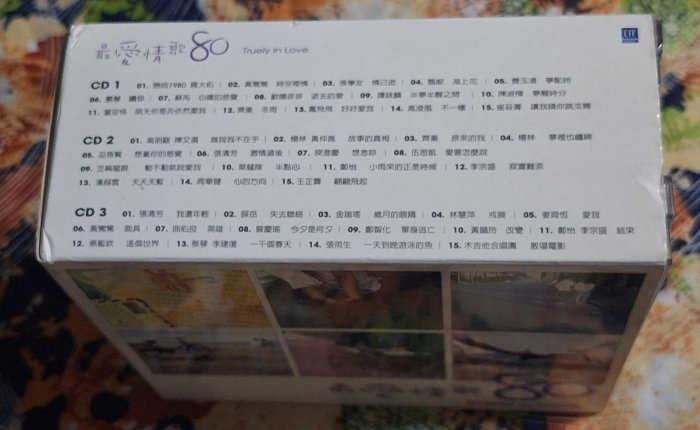 最愛情歌80 Truely In Love
CIT
CD 1 01. 戀曲1980 羅大佑 | 02. 黃鶯鶯 時空寄情 | 03. 張學友 情已逝 | 04. 甄妮 海上花 | 05. 費玉清 夢駝鈴
06. 蔡琴 讀你 | 07. 蘇芮 心痛的感覺 | 08. 歐陽菲菲 逝去的愛 | 09. 譚詠麟 半夢半醒之間 | 10. 陳淑樺 夢醒時分
11. 葉安格 明天你是否依然愛我 | 12. 齊秦 冬雨 | 13. 鳳飛飛 好好愛我 | 14. 高凌風 不一樣 | 15. 崔苔菁 請我請你跳支舞
CD 2 01. 高明駿 陳艾湄 誰說我不在乎 | 02. 楊林 黃仲崑 故事的真相 | 03. 齊豫 原來的我 | 04. 楊林 夢裡也纏綿
05. 巫啓賢 想著你的感覺 | 06. 張清芳 激情過後 | 07. 庾澄慶 想念妳 | 08. 伍思凱 愛要怎麼說
09. 芝麻龍眼 動不動就說愛我 | 10. 草蜢隊 半點心 | 11. 鄭怡 小雨來的正是時候 | 12. 李宗盛 寂寞難奈
13. 潘越雲 天天天藍 | 14. 周華健 心的方向 | 15. 王芷蕾 翩翩飛起
CD 3 01. 張清芳 我還年輕 | 02. 薛岳 失去聯絡 | 03. 金瑞瑤 歲月的眼睛 | 04. 林慧萍 戒痕 | 05. 姜育恆 愛我
06. 黃鶯鶯 面具 | 07. 曲佑良 英雄 | 08. 蘇慶瑜 今夕是何夕 | 09. 鄭智化 單身逃亡 | 10. 黃韻玲 改變 | 11. 鄭怡 李宗盛 結束
12. 蔡藍欽 這個世界 | 13. 蔡琴 李建復 一千個春天 | 14. 張雨生 一天到晚游泳的魚 | 15. 木吉他合唱團 散場電影
最愛情歌80